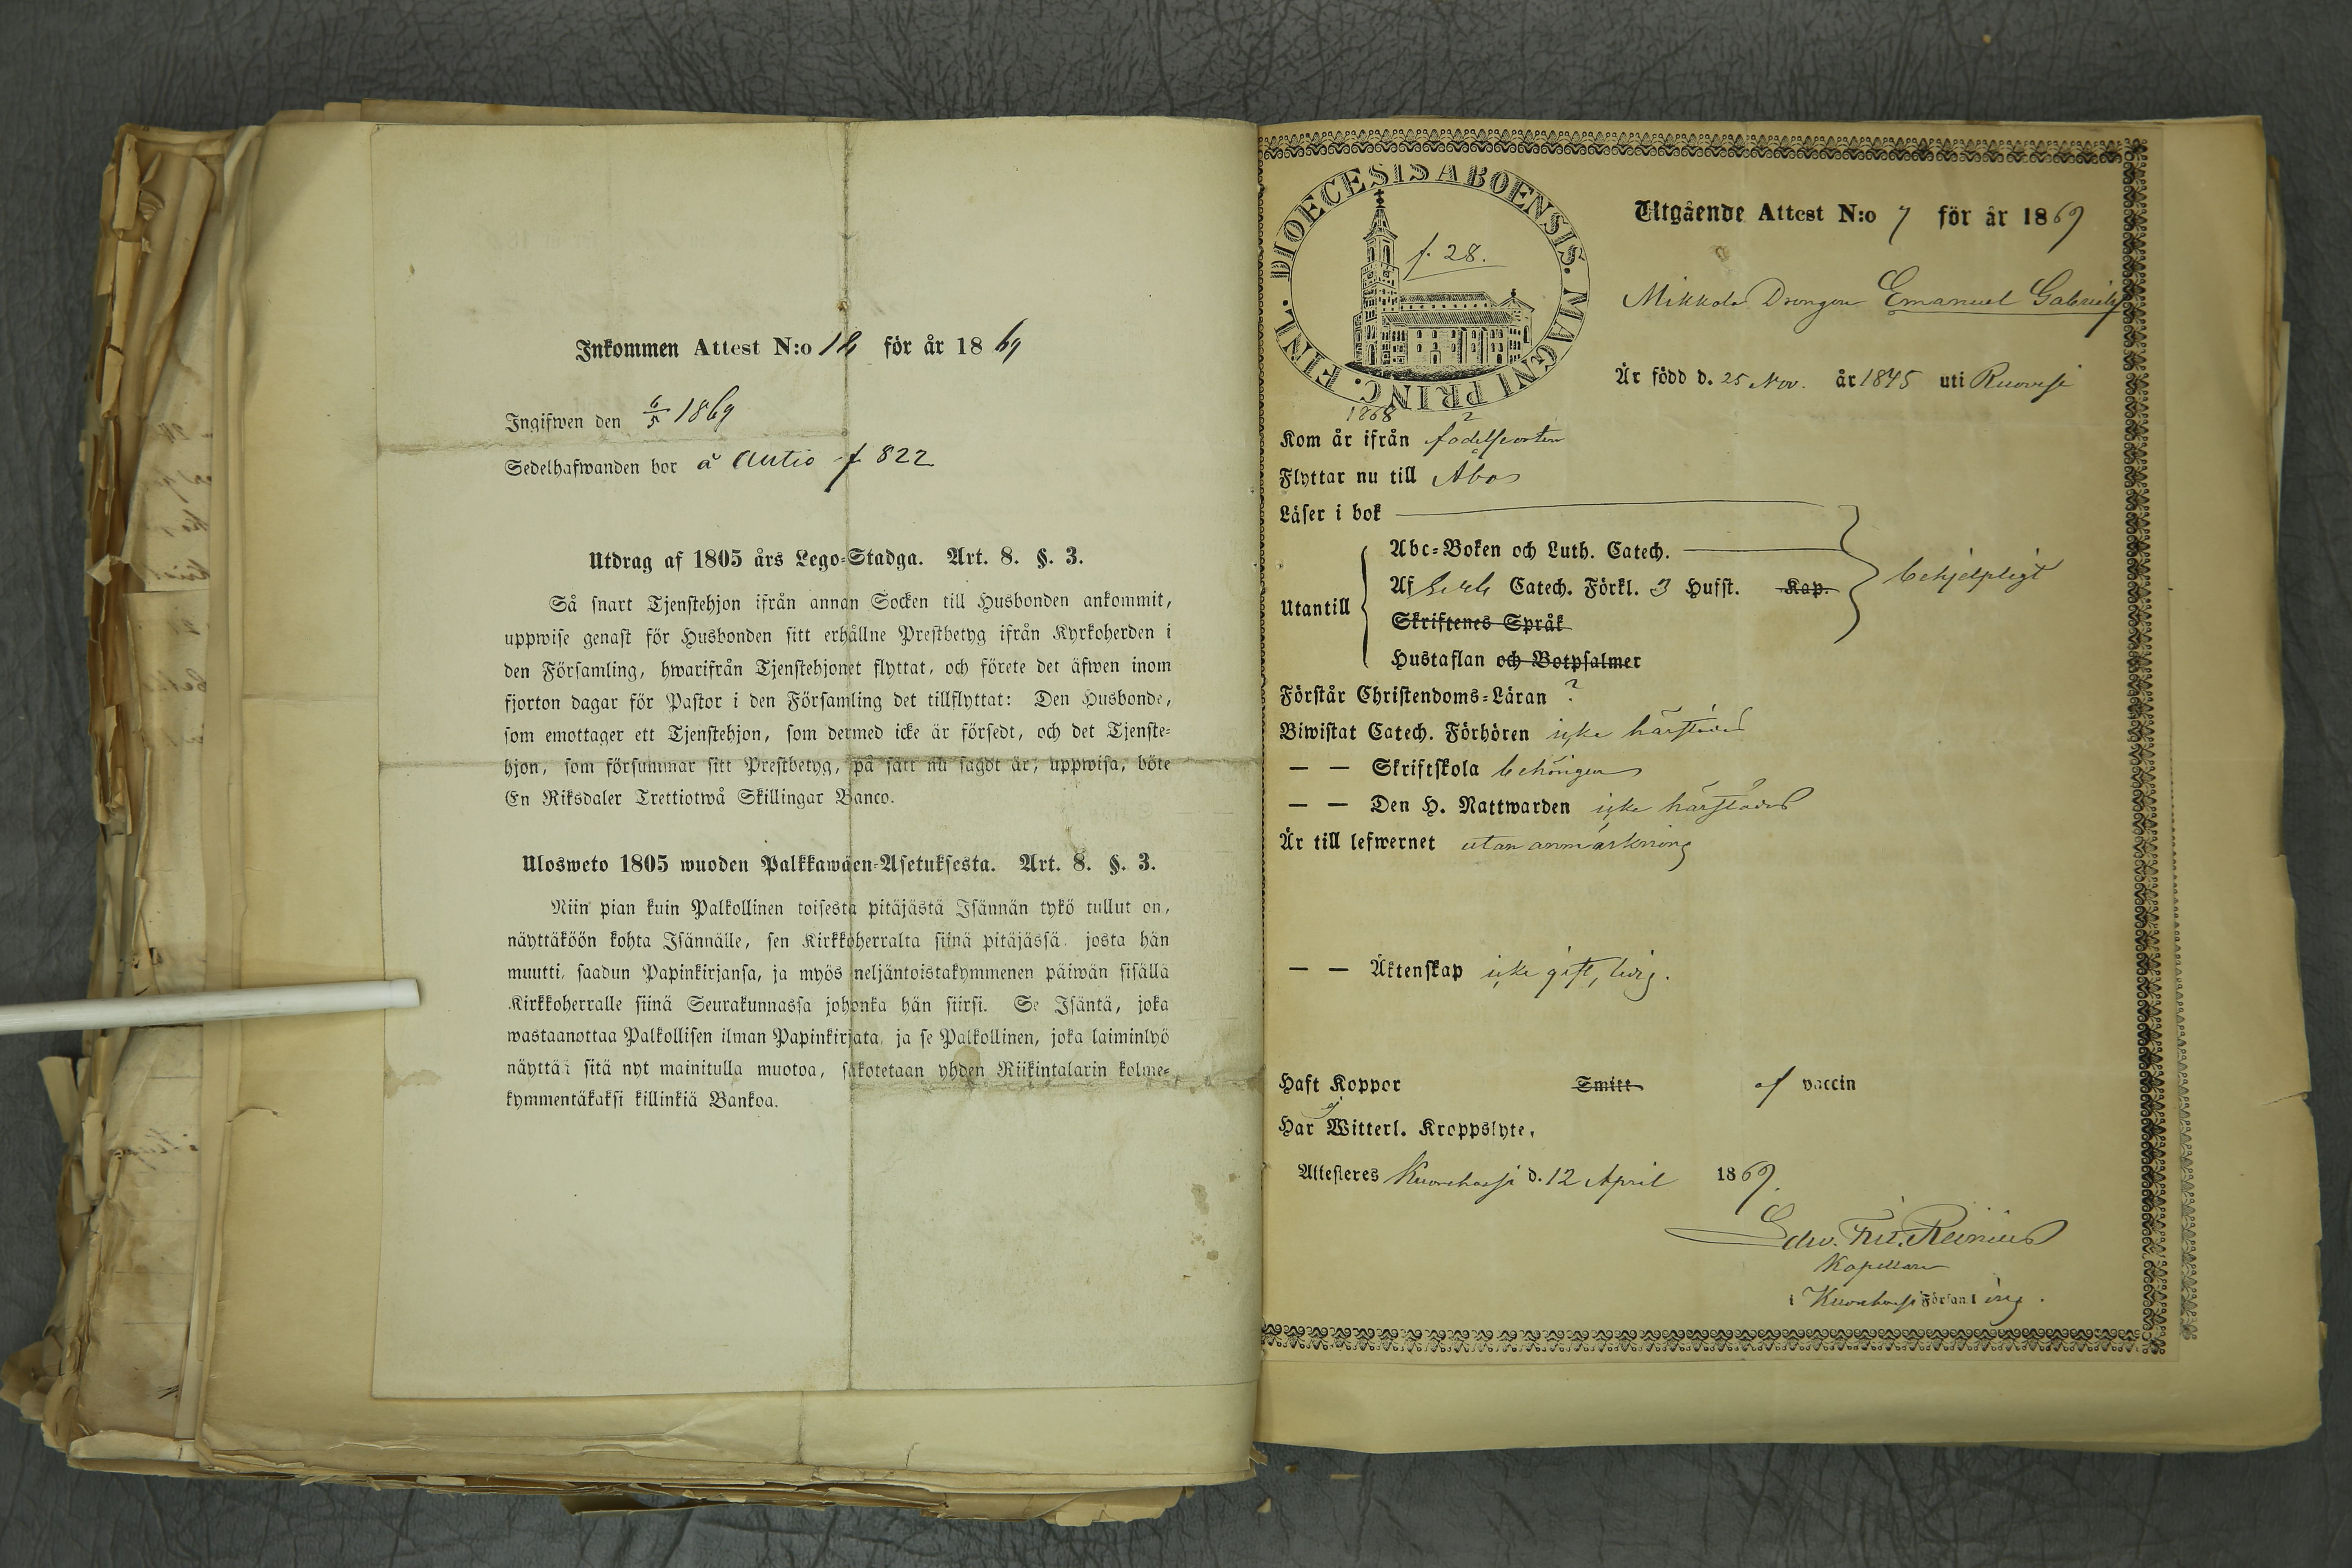 Inkommen Attest N:o 12 för år 1869
Ingifwen den 6/5 1869
Sedelhafwanden bor å Autio f 822
Utdrag af 1805 års Lego-Stadga. Art. 8. §. 3.
Så snart Tjenstehjon ifrån annan Socken till Husbonden ankommit,
uppwise genast för Husbonden sitt erhållne Prestbetyg ifrån Kyrkoherden i
den Församling, hwarifrån Tjenstehjonet flyttat, och förete det äfwen inom
fjorton dagar för Pastor i den Församling det tillflyttat: Den Husbonde,
som emottager ett Tjenstehjon, som dermed icke är försedt, och det Tjenste-
hjon, som försummar sitt Prestbetyg, på sätt nu sagdt är, uppwisa, böte
En Riksdaler Trettiotwå Skillingar Banco.
Ulosweto 1805 wuoden Palkkawäen-Asetuksesta. Art. 8. §. 3.
Niin pian kuin Palkollinen toisesta pitäjästä Isännän tykö tullut on,
näyttäköön kohta Isännälle, sen Kirkkoherralta siinä pitäjässä josta hän
muutti, saadun Papinkirjansa, ja myös neljäntoistakymmenen päiwän sisällä
Kirkkoherralle siinä Seurakunnassa johonka hän siirsi. Se Isäntä, joka
wastaanottaa Palkollisen ilman Papinkirjata, ja se Palkollinen, joka laiminlyö
näyttää sitä nyt mainitulla muotoa, sakotetaan yhden Riikintalarin kolme-
kymmentäkaksi killinkiä Bankoa.
DIOECESIS ABOENSIS. MAGNI PRINC. FINL.
f. 28.
Utgående Attest N:o 7 för år 1869
Mikkola Drengen Emanuel Gabrielss
Är född d. 25 Nov. år 1845 uti Ruovesi
1868
Kom år ifrån födelseorten
Flyttar nu till Åbo
Läser i bok
Abc-Boken och Luth. Catech.
Utantill Af Catech. Förkl. 3 Husst. Kap. behjelpligt
Skriftenes Språk
Hustaflan och Botpsalmer
Förstår Christendoms-Läran ?
Biwistat Catech. Förhören icke härstädes
— — Skriftskola behörigen
— — Den H. Nattwarden icke härstädes
Är till lefwernet utan anmärkning
— — Äktenskap icke gift, ledig.
Haft Koppor Smitt af vaccin
Har ej Witterl. Kroppslyte.
Attesteres Kuorehwesi d. 12 April 1869.
Edw. Fr. Reinius
Kapellan
i Kuorehwesi Församling.